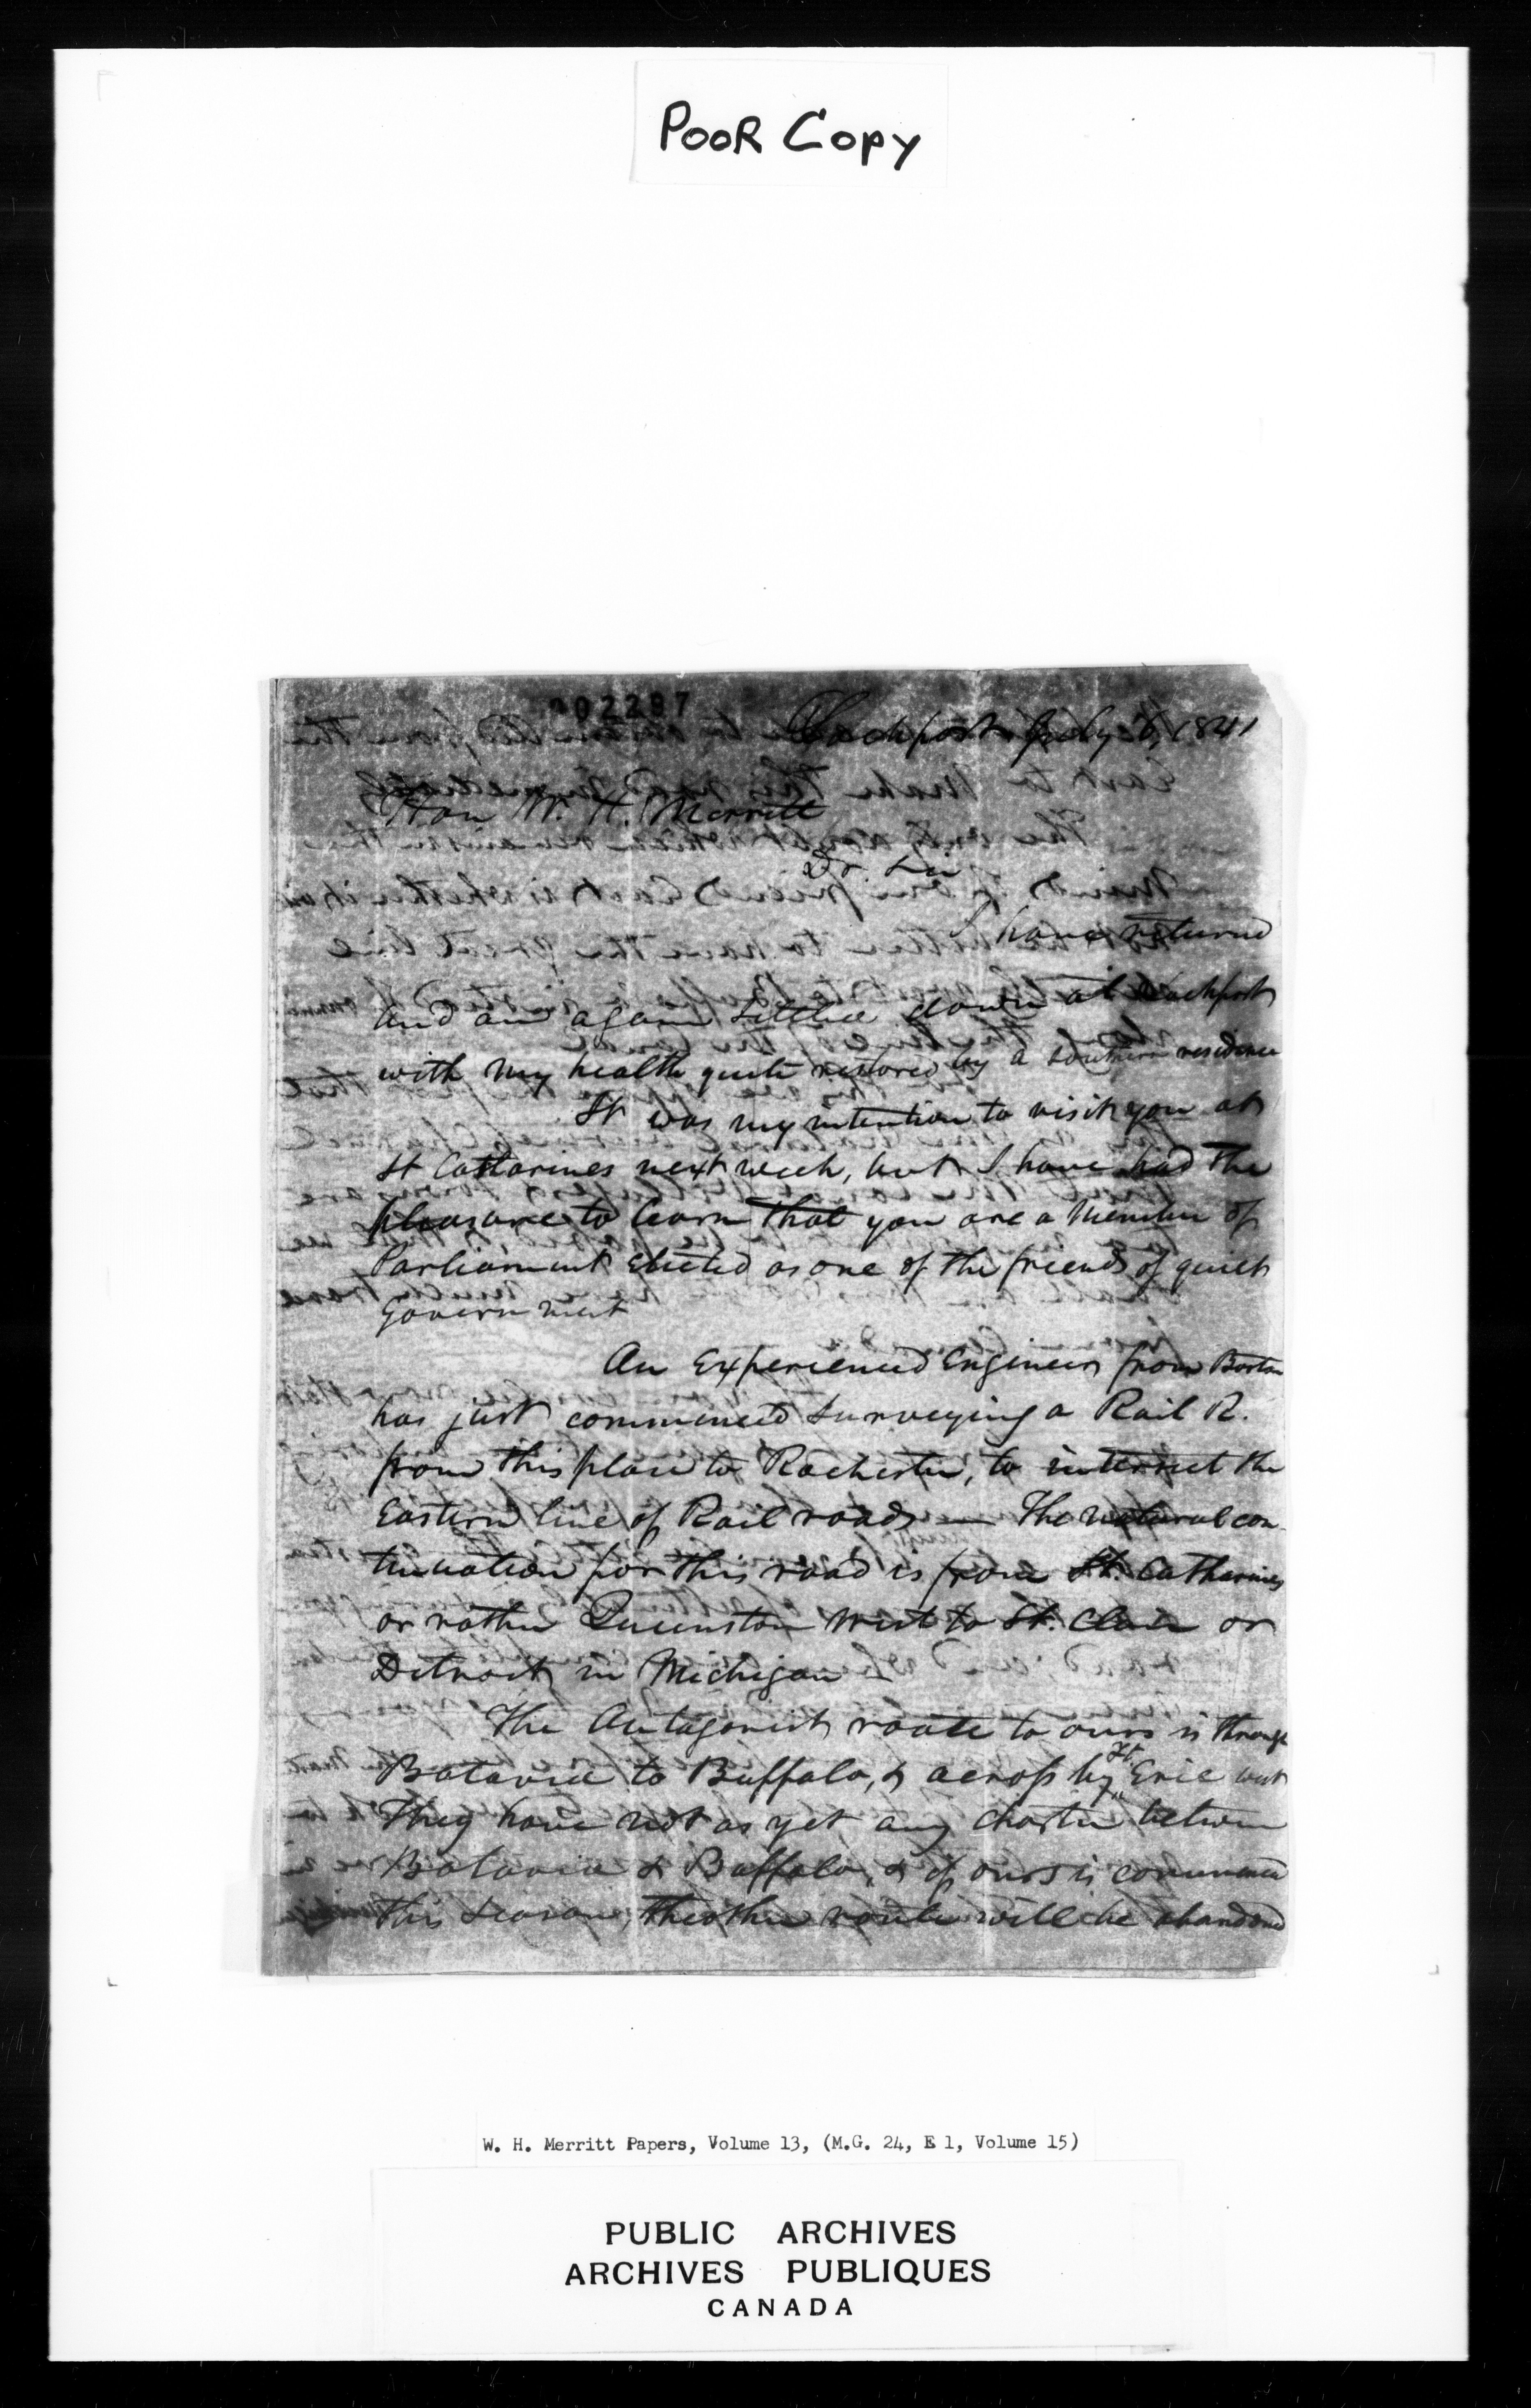 POOR COPY
002287
Lockport July 6, 1841
Hon W. H. Merritt
Dr. Sir
I have returned
and am again settled down at Lockport
with my health quite restored by a southern residence
It was my intention to visit you at
St Catharines next week, but I have had the
pleasure to learn that you are a Member of
Parliament Elected as one of the friends of quiet
Government
An Experienced Engineer from Boston
has just commenced surveying a Rail R.
from this place to Rochester, to intersect the
Eastern line of Rail roads — The natural con-
tinuation for this road is from St. Catharines
or rather Queenston West to St. Clair or
Detroit in Michigan —
The Antagonist route to ours is through
Batavia to Buffalo, & across by Ft. Erie west
They have not as yet any charter between
Batavia & Buffalo, & if ours is commenced
this season, the other route will be abandoned
W. H. Merritt Papers, Volume 13, (M.G. 24, E 1, Volume 15)
PUBLIC ARCHIVES
ARCHIVES PUBLIQUES
CANADA